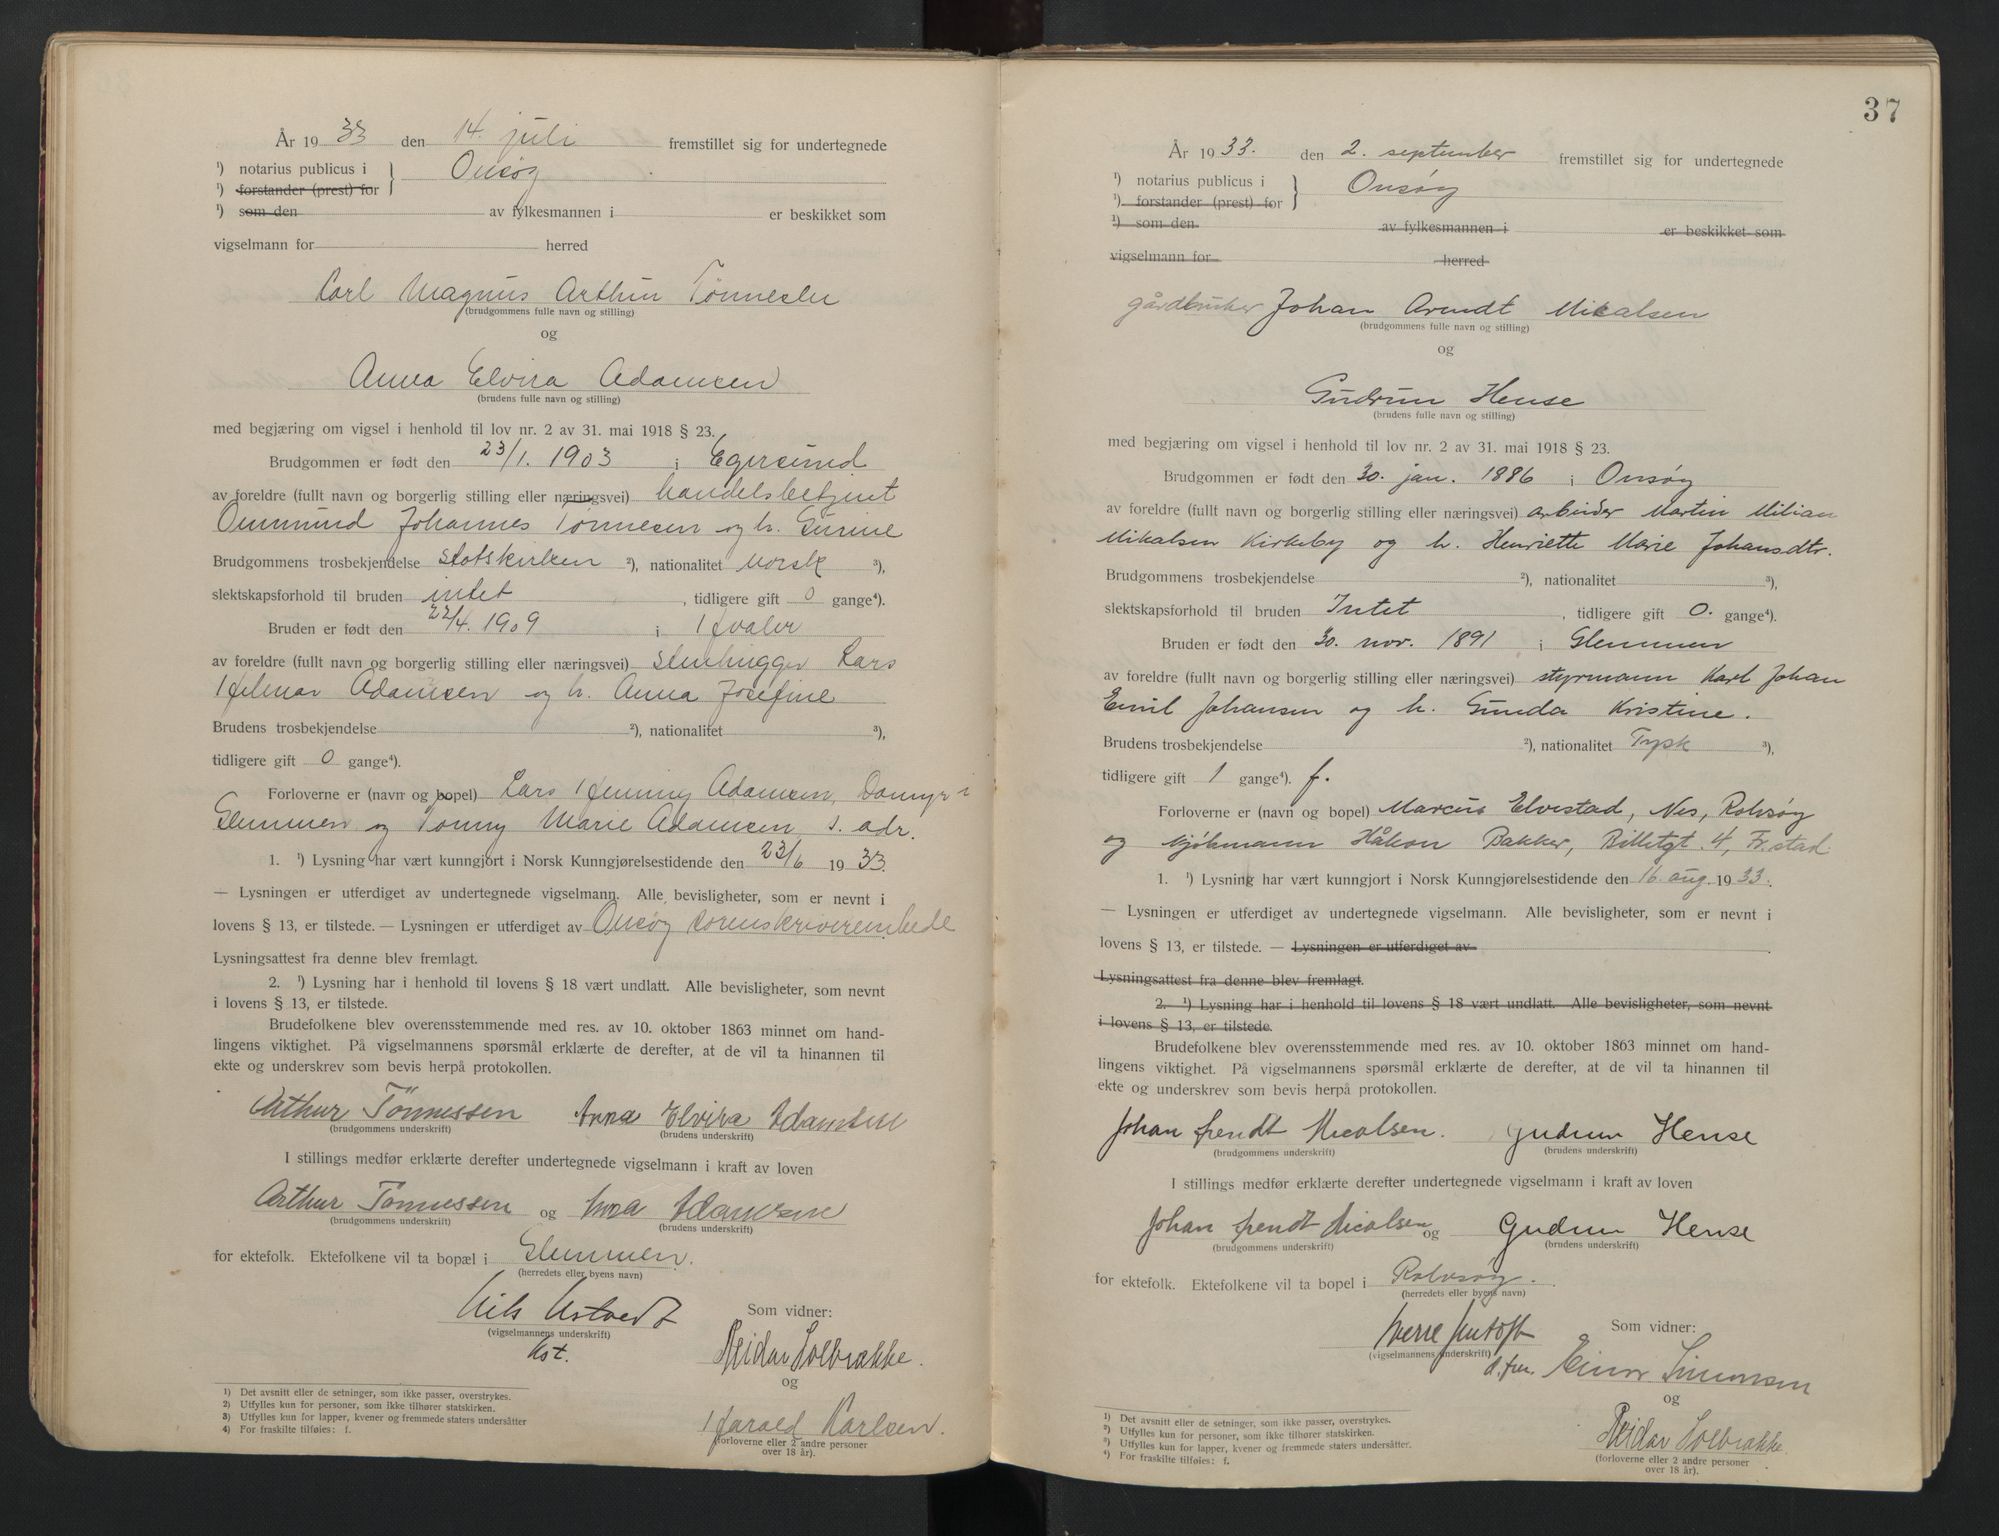 År 1933 den 14. juli fremstillet sig for undertegnede
¹) notarius publicus i } Onsøy
¹) forstander (prest) for
¹) som den av fylkesmannen i er beskikket som
vigselmann for herred
Carl Magnus Arthur Tønnesen
(brudgommens fulle navn og stilling)
og
Anna Elvira Adamsen
(brudens fulle navn og stilling)
med begjæring om vigsel i henhold til lov nr. 2 av 31. mai 1918 § 23.
Brudgommen er født den 23/1. 1903 i Egersund
av foreldre (fullt navn og borgerlig stilling eller næringsvei) handelsbetjent
Ommund Johannes Tønnesen og h. Gurine
Brudgommens trosbekjendelse statskirken ²), nationalitet norsk ³),
slektskapsforhold til bruden intet, tidligere gift 0 gange⁴).
Bruden er født den 22/4. 1909 i Hvaler
av foreldre (fullt navn og borgerlig stilling eller næringsvei) stenhugger Lars
Hilmar Adamsen og h. Anna Josefine
Brudens trosbekjendelse ²), nationalitet ³),
tidligere gift 0 gange⁴).
Forloverne er (navn og bopel) Lars Henning Adamsen, Dammyr i
Glemmen og Tonny Marie Adamsen s. adr.
1. ¹) Lysning har vært kunngjort i Norsk Kunngjørelsestidende den 23/6 1933.
— Lysningen er utferdiget av undertegnede vigselmann. Alle bevisligheter, som er nevnt i
lovens § 13, er tilstede. — Lysningen er utferdiget av Onsøy sorenskriverembede
Lysningsattest fra denne blev fremlagt.
2. ¹) Lysning har i henhold til lovens § 18 vært undlatt. Alle bevisligheter, som nevnt
i lovens § 13, er tilstede.
Brudefolkene blev overensstemmende med res. av 10. oktober 1863 minnet om hand-
lingens viktighet. På vigselmannens spørsmål erklærte de derefter, at de vil ta hinannen til
ekte og underskrev som bevis herpå protokollen.
Arthur Tønnessen Anna Elvira Adamsen
(brudgommens underskrift) (brudens underskrift)
I stillings medfør erklærte derefter undertegnede vigselmann i kraft av loven
Arthur Tønnessen og Anna Adamsen
(brudgommens underskrift) (brudens underskrift)
for ektefolk. Ektefolkene vil ta bopæl i Glemmen.
(herredets eller byens navn)
Nils Astvedt Som vidner:
(vigselmannens underskrift) Reidar Solbrække.
kst.
og
Harald Karlsen.
(forloverne eller 2 andre personer
over 18 år).
¹) Det avsnitt eller de setninger, som ikke passer, overstrykes.
²) Utfylles kun for personer, som ikke tilhører statskirken.
³) Utfylles kun for lapper, kvener og fremmede staters undersåtter
⁴) For fraskilte tilføies: f.
37
År 1933. den 2. september fremstillet sig for undertegnede
¹) notarius publicus i } Onsøy
¹) forstander (prest) for
¹) som den av fylkesmannen i er beskikket som
vigselmann for herred
gårdbruker Johan Arendt Mikalsen
(brudgommens fulle navn og stilling)
og
Gudrun Hense
(brudens fulle navn og stilling)
med begjæring om vigsel i henhold til lov nr. 2 av 31. mai 1918 § 23.
Brudgommen er født den 30. jan. 1886 i Onsøy
av foreldre (fullt navn og borgerlig stilling eller næringsvei) arbeider Martin Milian
Mikalsen Kirkeby og h. Henriette Marie Johansdtr.
Brudgommens trosbekjendelse ²), nationalitet ³),
slektskapsforhold til bruden Intet, tidligere gift 0. gange⁴).
Bruden er født den 30. nov. 1891 i Glemmen
av foreldre (fullt navn og borgerlig stilling eller næringsvei) styrmann Karl Johan
Emil Johansen og h. Gunda Kristine.
Brudens trosbekjendelse ²), nationalitet Tysk ³),
tidligere gift 1 gange⁴). f.
Forloverne er (navn og bopel) Marcus Elvestad, Nes, Rolvsøy
og kjøbmann Håkon Bakker, Billetgt. 4, Fr.stad.
1. ¹) Lysning har vært kunngjort i Norsk Kunngjørelsestidende den 16. aug. 1933.
— Lysningen er utferdiget av undertegnede vigselmann. Alle bevisligheter, som er nevnt i
lovens § 13, er tilstede. — Lysningen er utferdiget av
Lysningsattest fra denne blev fremlagt.
2. ¹) Lysning har i henhold til lovens § 18 vært undlatt. Alle bevisligheter, som nevnt
i lovens § 13, er tilstede.
Brudefolkene blev overensstemmende med res. av 10. oktober 1863 minnet om hand-
lingens viktighet. På vigselmannens spørsmål erklærte de derefter, at de vil ta hinannen til
ekte og underskrev som bevis herpå protokollen.
Johan Arendt Micalsen. Gudrun Hense
(brudgommens underskrift) (brudens underskrift)
I stillings medfør erklærte derefter undertegnede vigselmann i kraft av loven
Johan Arendt Micalsen og Gudrun Hense
(brudgommens underskrift) (brudens underskrift)
for ektefolk. Ektefolkene vil ta bopel i Rolvsøy.
(herredets eller byens navn)
Sverre Som vidner:
(vigselmannens underskrift)
d. fm. Einar Simonsen
og
Reidar Solbrække.
(forloverne eller 2 andre personer
over 18 år).
¹) Det avsnitt eller de setninger, som ikke passer, overstrykes.
²) Utfylles kun for personer, som ikke tilhører statskirken.
³) Utfylles kun for lapper, kvener og fremmede staters undersåtter.
⁴) For fraskilte tilføies: f.